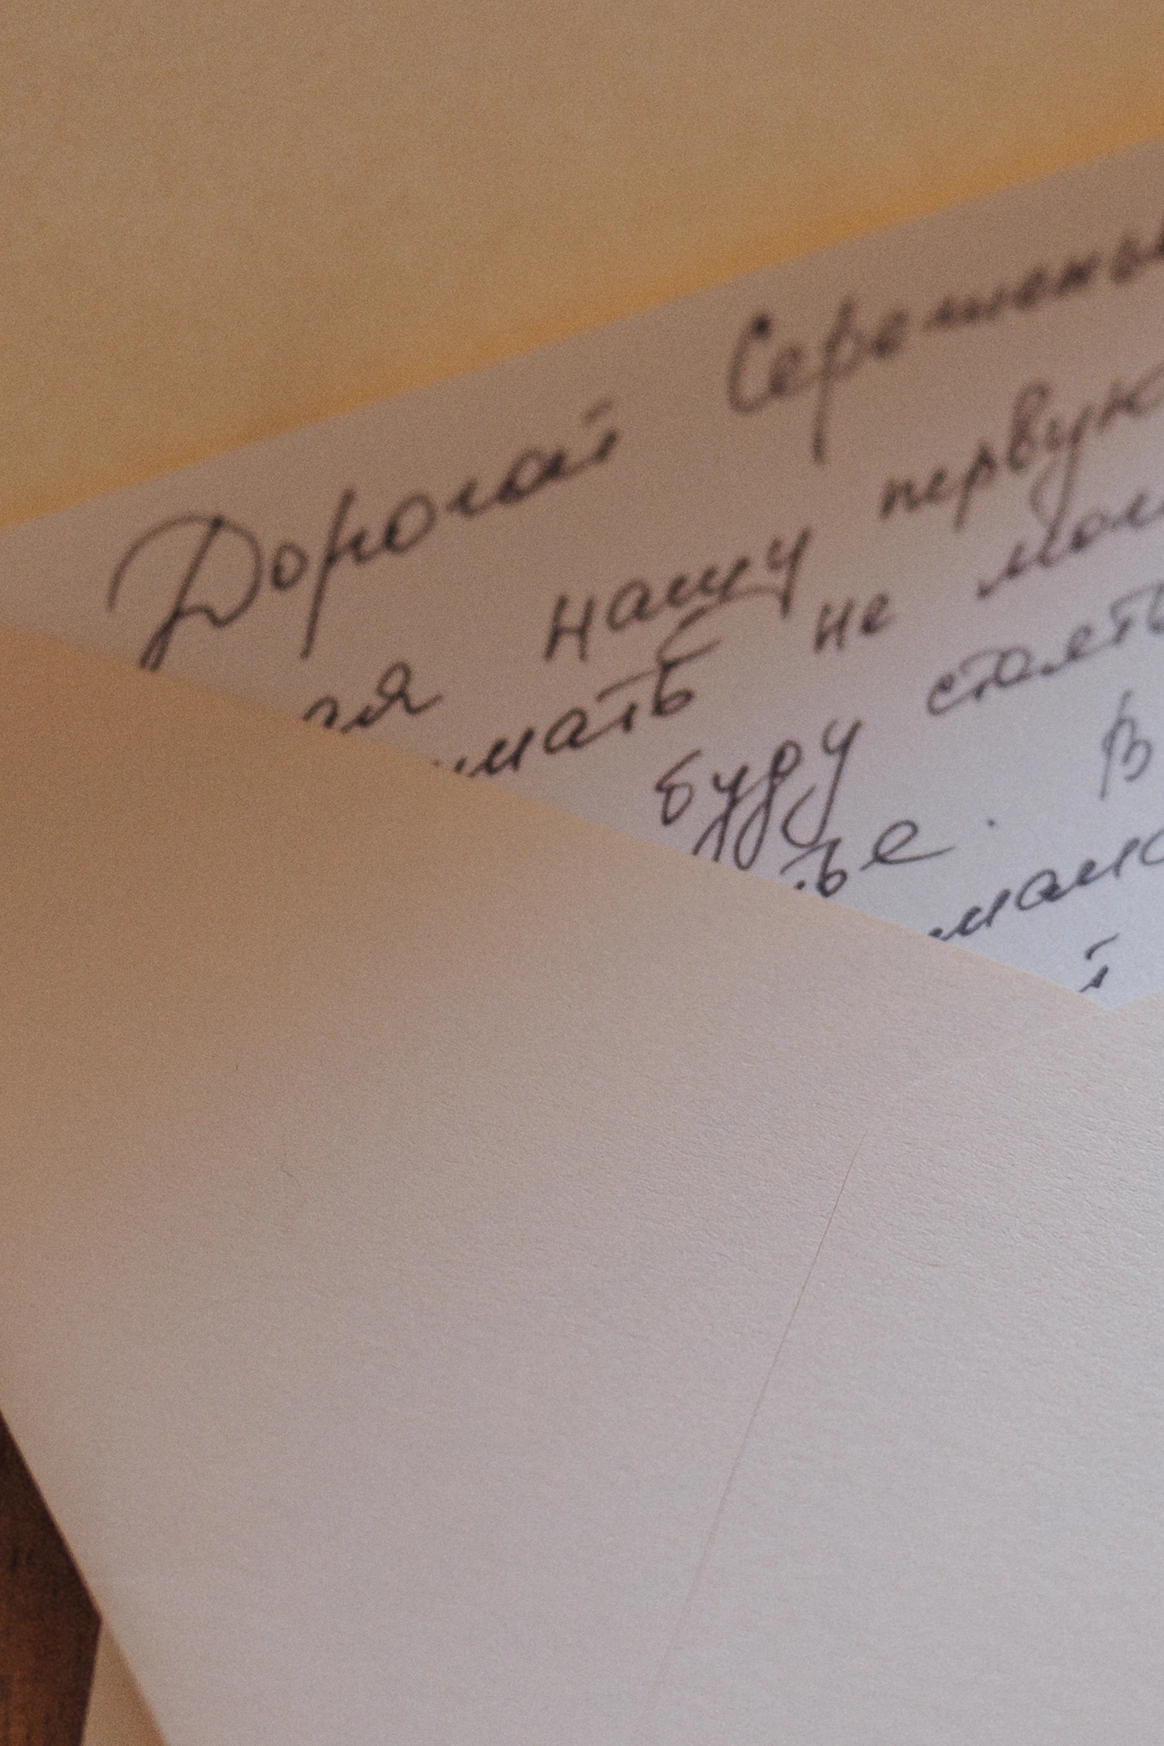 Дорогой Сереженьк
ся нашу первую
имать не мог
буду стоять
ье. В
мано
й